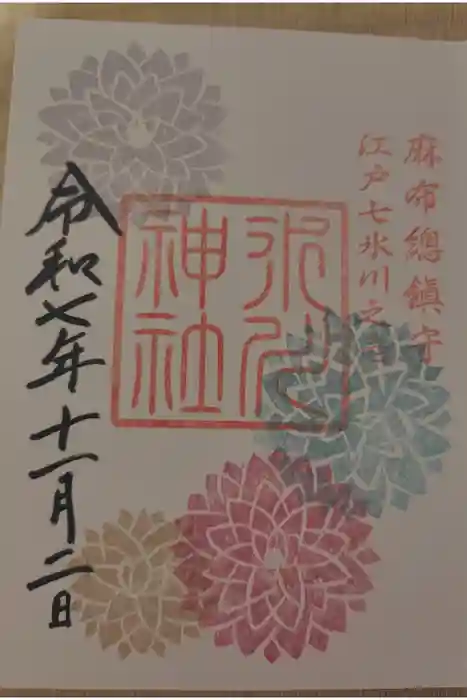 麻布總鎮守
江戸七氷川之一
氷川
神社
令和七年十一月二日